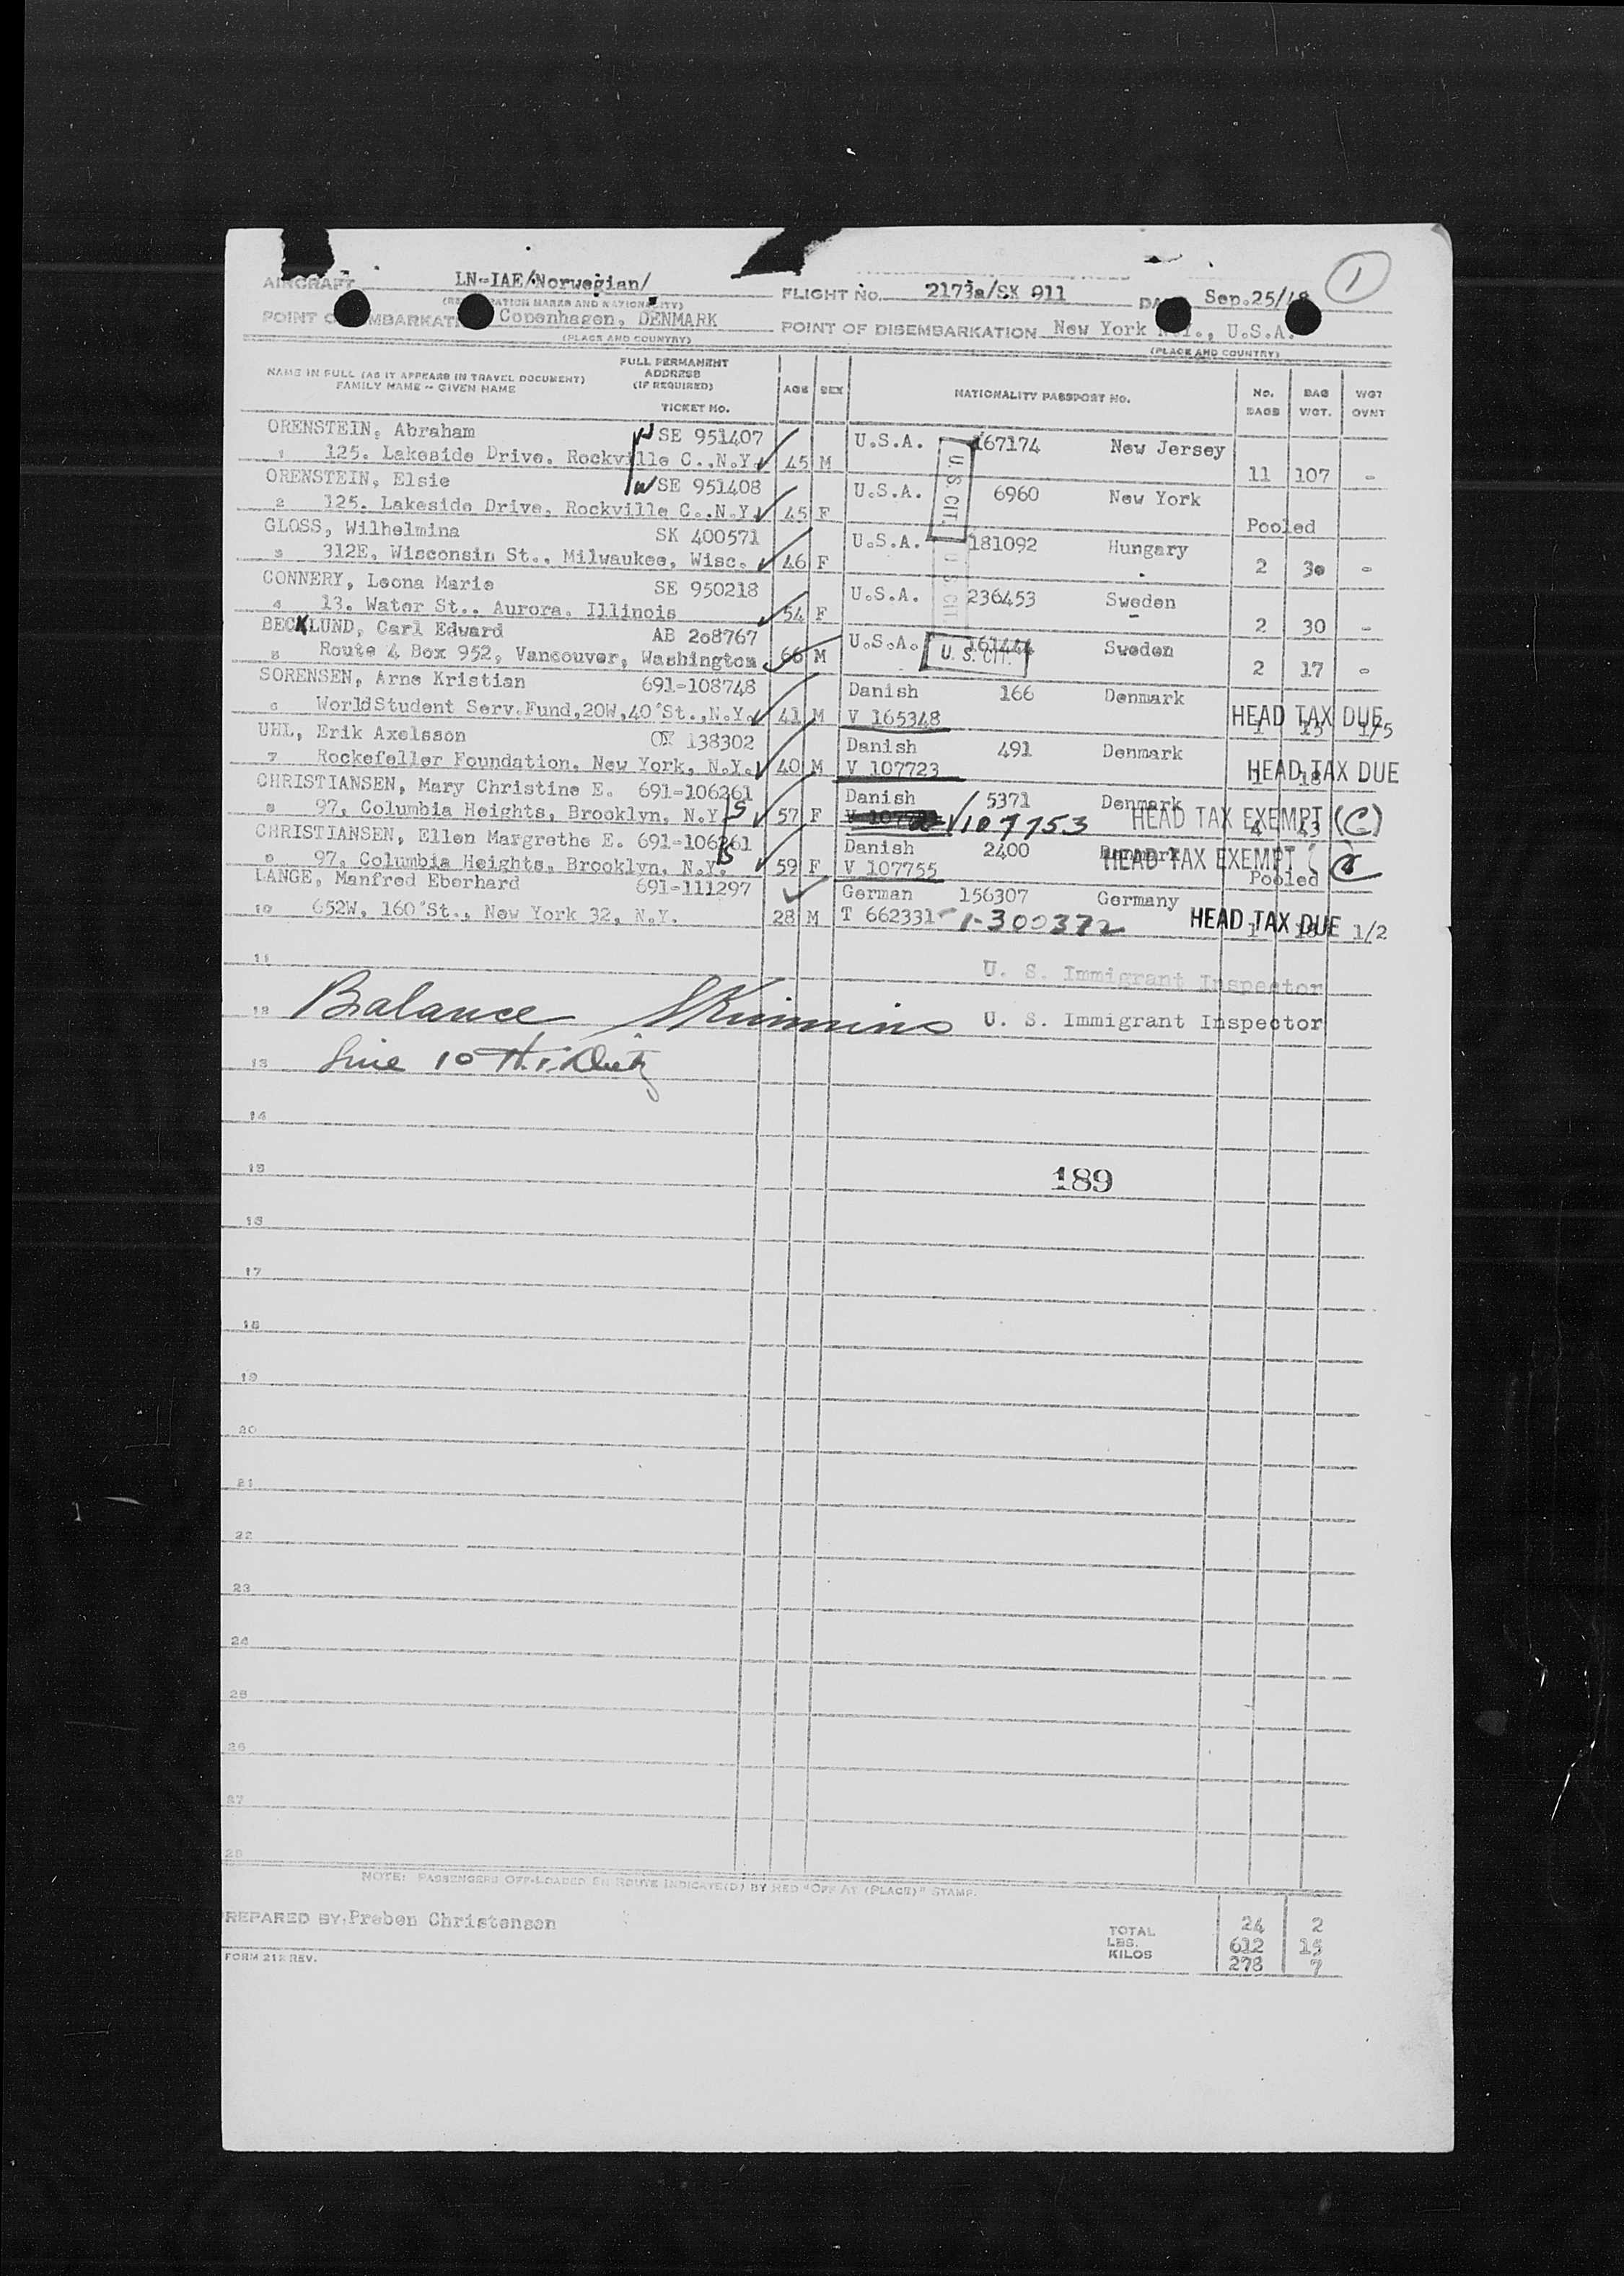 1
AIRCRAFT LN-IAE/Norwegian/ FLIGHT NO. 2173a/SK 911 Sep.25/48
Copenhagen, DENMARK POINT OF DISEMBARKATION New York U.S.A.
(PLACE AND COUNTRY) (PLACE AND COUNTRY)
NAME IN FULL (AS IT APPEARS IN TRAVEL DOCUMENT) FULL PERMANENT ADDRESS AGE SEX NATIONALITY PASSPORT NO. NO. BAG WGT
FAMILY NAME - GIVEN NAME (IF REQUIRED) BAGS WGT. OVNT
TICKET NO.
ORENSTEIN, Abraham SE 951407 U.S.A. 167174 New Jersey
1 125. Lakeside Drive, Rockville C.,N.Y. 45 M 11 107 -
ORENSTEIN, Elsie SE 951408 U.S.A. 6960 New York
2 125. Lakeside Drive, Rockville C.,N.Y. 45 F Pooled
U.S CIT.
GLOSS, Wilhelmina SK 400571 U.S.A. 181092 Hungary
3 312E, Wisconsin St., Milwaukee, Wisc. 46 F 2 30 -
U S CIT.
CONNERY, Leona Marie SE 950218 U.S.A. 236453 Sweden
4 13. Water St., Aurora, Illinois 54 F 2 30 -
BECKLUND, Carl Edward AB 208767 U.S.A. 161444 Sweden
5 Route 4 Box 952, Vancouver, Washington 66 M U. S. CIT. 2 17 -
SORENSEN, Arne Kristian 691-108748 Danish 166 Denmark
6 WorldStudent Serv.Fund,20W,40'St.,N.Y. 41 M V 165348 HEAD TAX DUE 1 15
UHL, Erik Axelsson 138302 Danish 491 Denmark
7 Rockefeller Foundation, New York, N.Y. 40 M V 107723 HEAD TAX DUE 1 18
CHRISTIANSEN, Mary Christine E. 691-106261 Danish 5371 Denmark
8 97, Columbia Heights, Brooklyn, N.Y. 57 F V107753 HEAD TAX EXEMPT (C)
CHRISTIANSEN, Ellen Margrethe E. 691-106261 Danish 2400 Denmark
9 97, Columbia Heights, Brooklyn, N.Y. 59 F V 107755 HEAD TAX EXEMPT Pooled
LANGE, Manfred Eberhard 691-111297 German 156307 Germany
10 652W, 160'St., New York 32, N.Y. 28 M T 662331 1-300372 HEAD TAX DUE 1 18 1/2
11 U. S. Immigrant Inspector
12 Balance U. S. Immigrant Inspector
13 line 10
14
15 189
16
17
18
19
20
21
22
23
24
25
26
27
28
NOTE: PASSENGERS OFF-LOADED EN ROUTE INDICATE(D) BY RED "OFF AT (PLACE)" STAMP.
PREPARED BY: Preben Christensen TOTAL 24 2
LBS. 612 15
KILOS 278 7
FORM 212 REV.